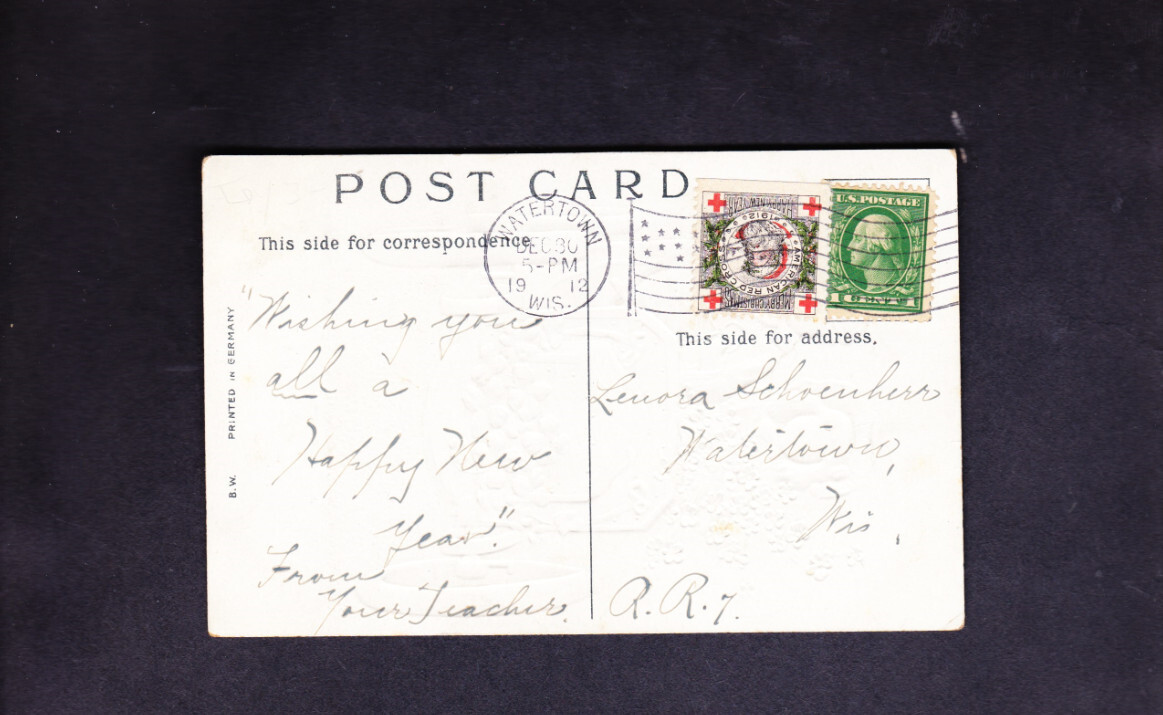 POST CARD
This side for correspondence
WATERTOWN
DEC 30
5-PM
19 12
WIS.
HAPPY NEW YEAR
1912
AMERICAN RED CROSS
MERRY CHRISTMAS
U.S. POSTAGE
1 CENT 1
This side for address.
"Wishing you
all a
Happy New
Year".
From
Your Teacher.
Lenora Schoenherr
Watertown,
Wis,
R.R.7.
B.W. PRINTED IN GERMANY